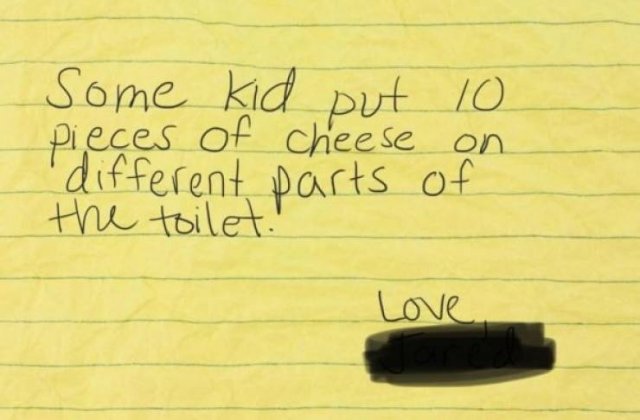 Some kid put 10
pieces of cheese on
different parts of
the toilet.
Love,